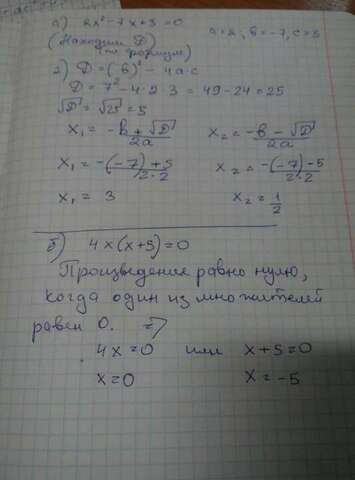 а) 2x² - 7x + 3 = 0   a = 2, b = -7, c = 3
(Находим D)
(по формуле)
2) D = (b)² - 4a·c
D = 7² - 4·2·3 = 49 - 24 = 25
√D = √25 = 5
x₁ = -b + √D / 2a   x₂ = -b - √D / 2a
x₁ = -(-7) + 5 / 2·2   x₂ = -(-7) - 5 / 2·2
x₁ = 3   x₂ = 1/2
б) 4x(x+5) = 0
Произведение равно нулю,
когда один из множителей
равен 0. =>
4x = 0 или x + 5 = 0
x = 0   x = -5